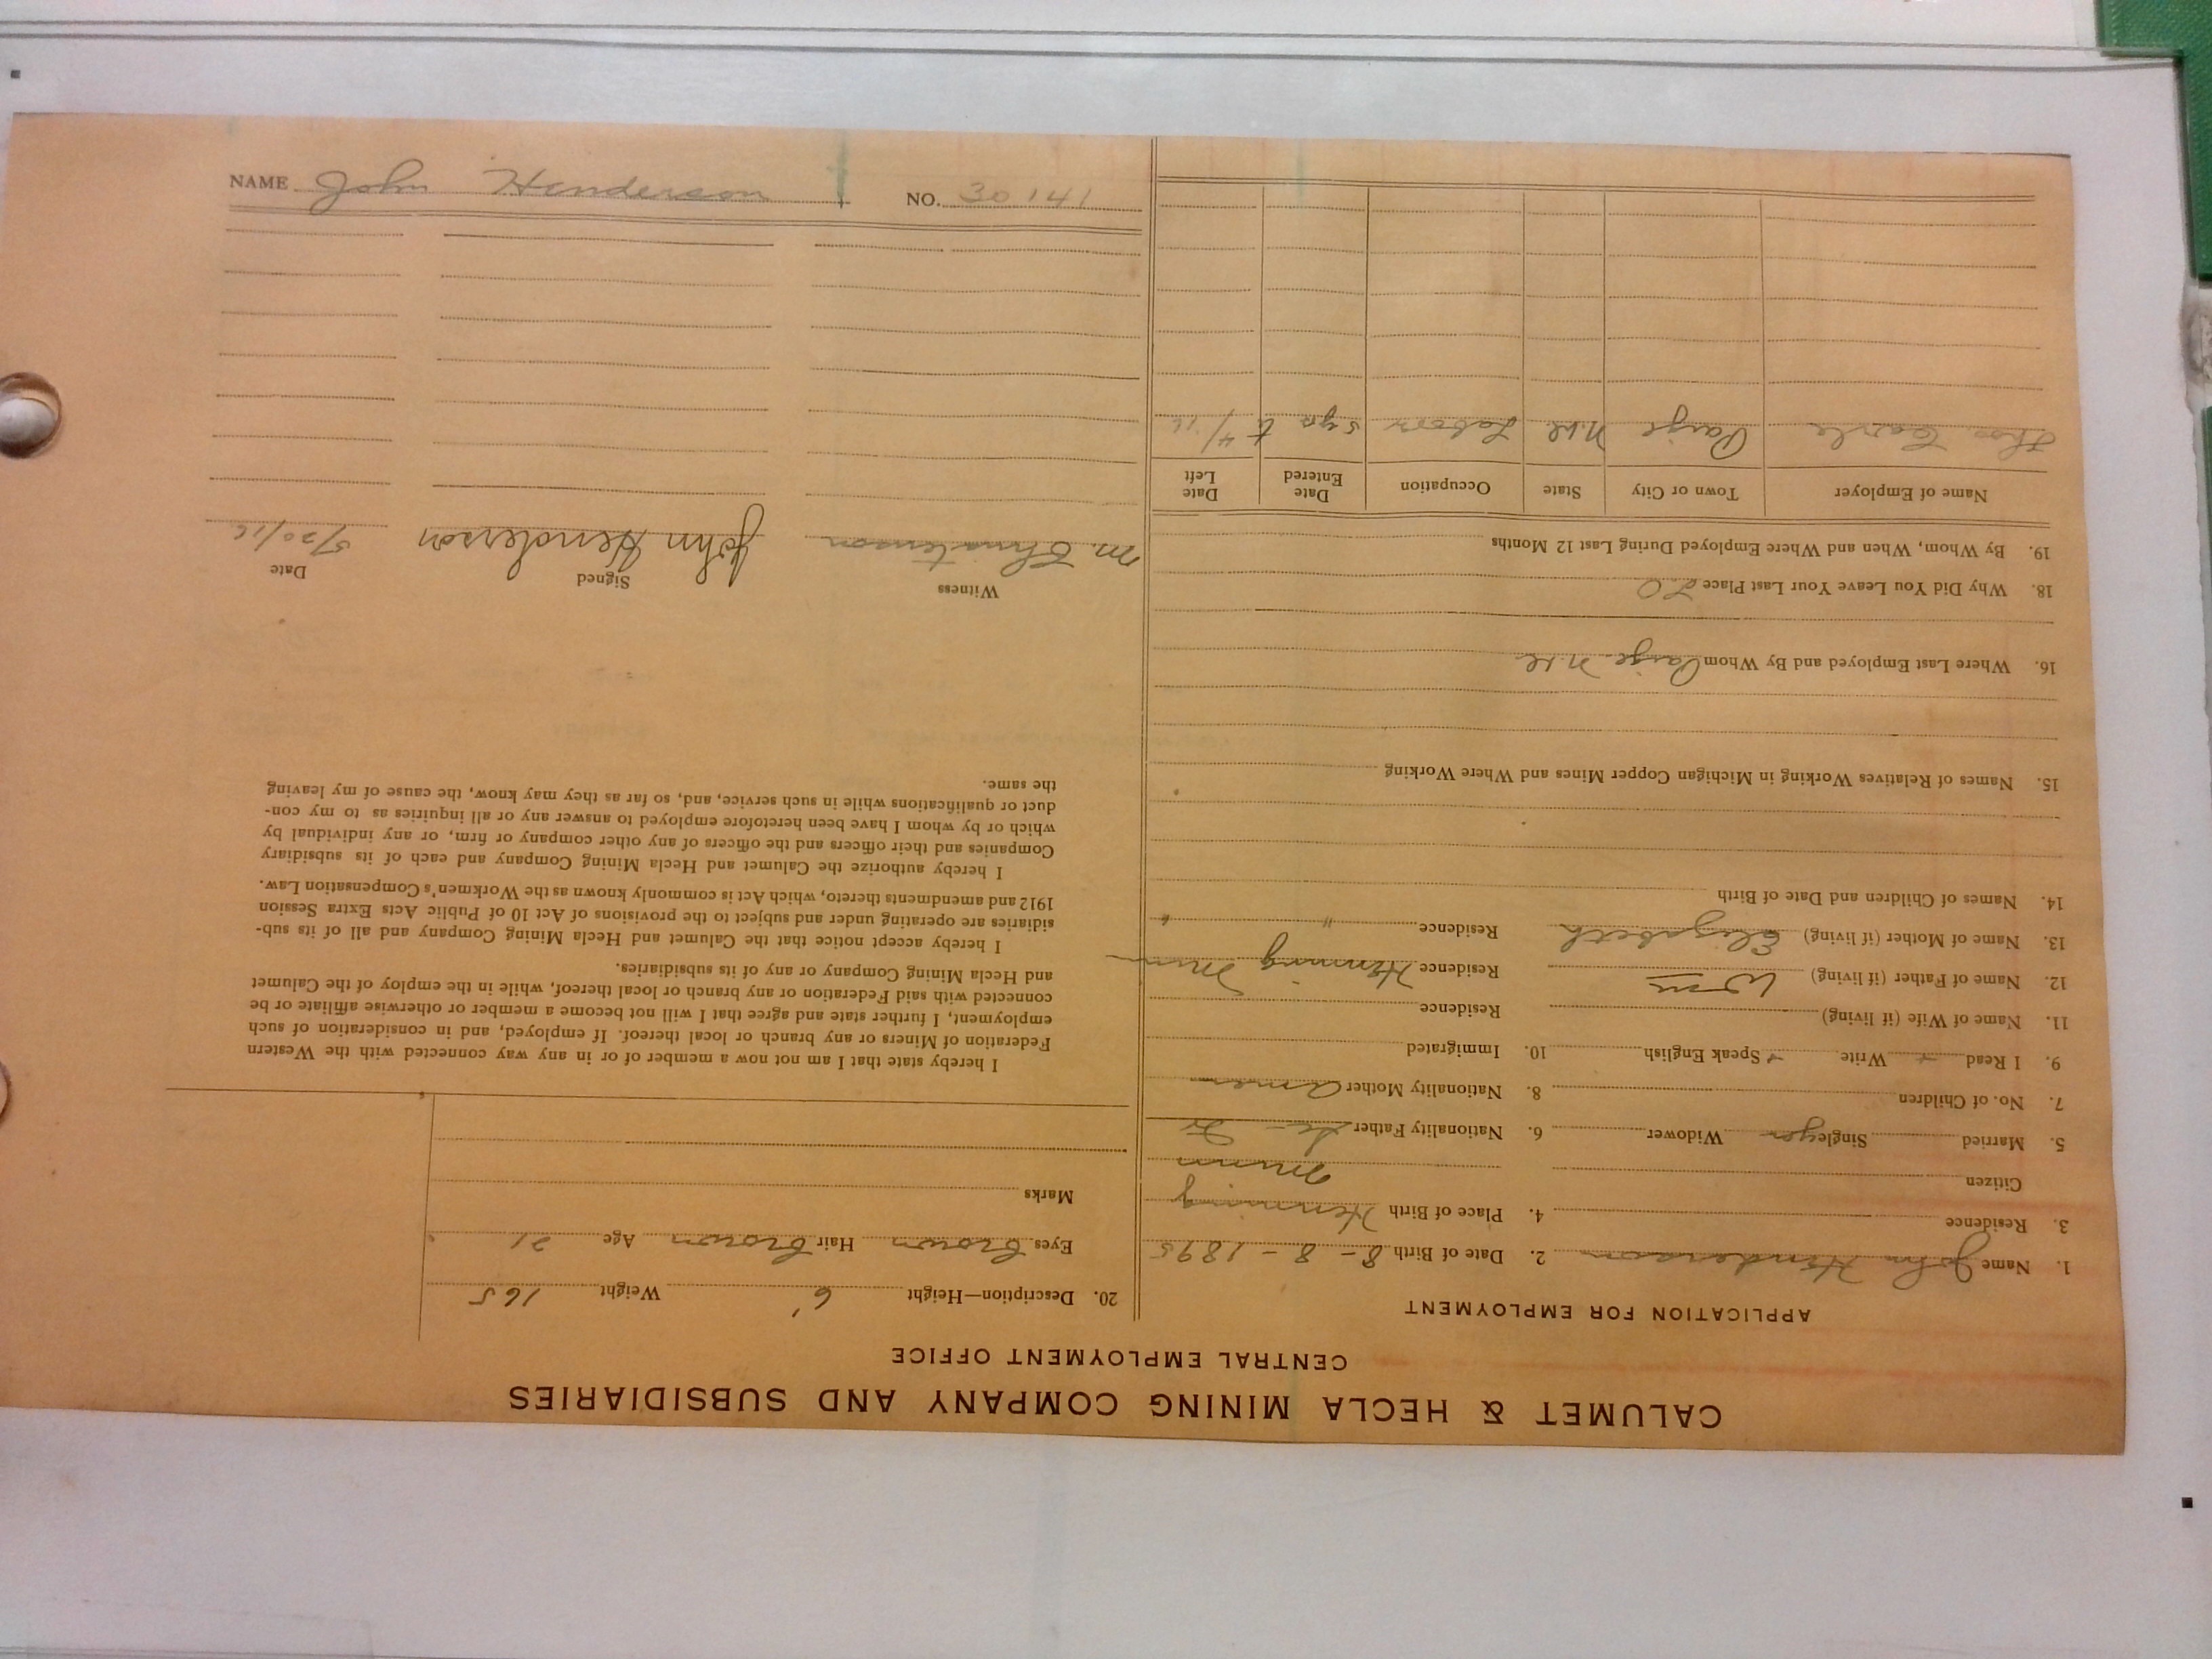 CALUMET & HECLA MINING COMPANY AND SUBSIDIARIES
CENTRAL EMPLOYMENT OFFICE
APPLICATION FOR EMPLOYMENT
1. Name John Henderson 2. Date of Birth 8 - 8 - 1895
3. Residence 4. Place of Birth Henning
Citizen Minn
5. Married Single yes Widower 6. Nationality Father
7. No. of Children 8. Nationality Mother Amer
9. I Read Write Speak English 10. Immigrated
11. Name of Wife (if living) Residence
12. Name of Father (if living) Wm Residence Henning Minn
13. Name of Mother (if living) Elizabeth Residence " "
14. Names of Children and Date of Birth
15. Names of Relatives Working in Michigan Copper Mines and Where Working
16. Where Last Employed and By Whom Paige N.D.
18. Why Did You Leave Your Last Place LO
19. By Whom, When and Where Employed During Last 12 Months
Name of Employer Town or City State Occupation Date Entered Date Left
Thos. Earle Paige Labor 5 yrs 4/16
20. Description—Height 6' Weight 165
Eyes brown Hair brown Age 21
Marks
I hereby state that I am not now a member of or in any way connected with the Western
Federation of Miners or any branch or local thereof. If employed, and in consideration of such
employment, I further state and agree that I will not become a member or otherwise affiliate or be
connected with said Federation or any branch or local thereof, while in the employ of the Calumet
and Hecla Mining Company or any of its subsidiaries.
I hereby accept notice that the Calumet and Hecla Mining Company and all of its sub-
sidiaries are operating under and subject to the provisions of Act 10 of Public Acts Extra Session
1912 and amendments thereto, which Act is commonly known as the Workmen's Compensation Law.
I hereby authorize the Calumet and Hecla Mining Company and each of its subsidiary
Companies and their officers and the officers of any other company or firm, or any individual by
which or by whom I have been heretofore employed to answer any or all inquiries as to my con-
duct or qualifications while in such service, and, so far as they may know, the cause of my leaving
the same.
Witness Signed Date
M. Christenson John Henderson 5/20/16
NAME John Henderson NO. 30141